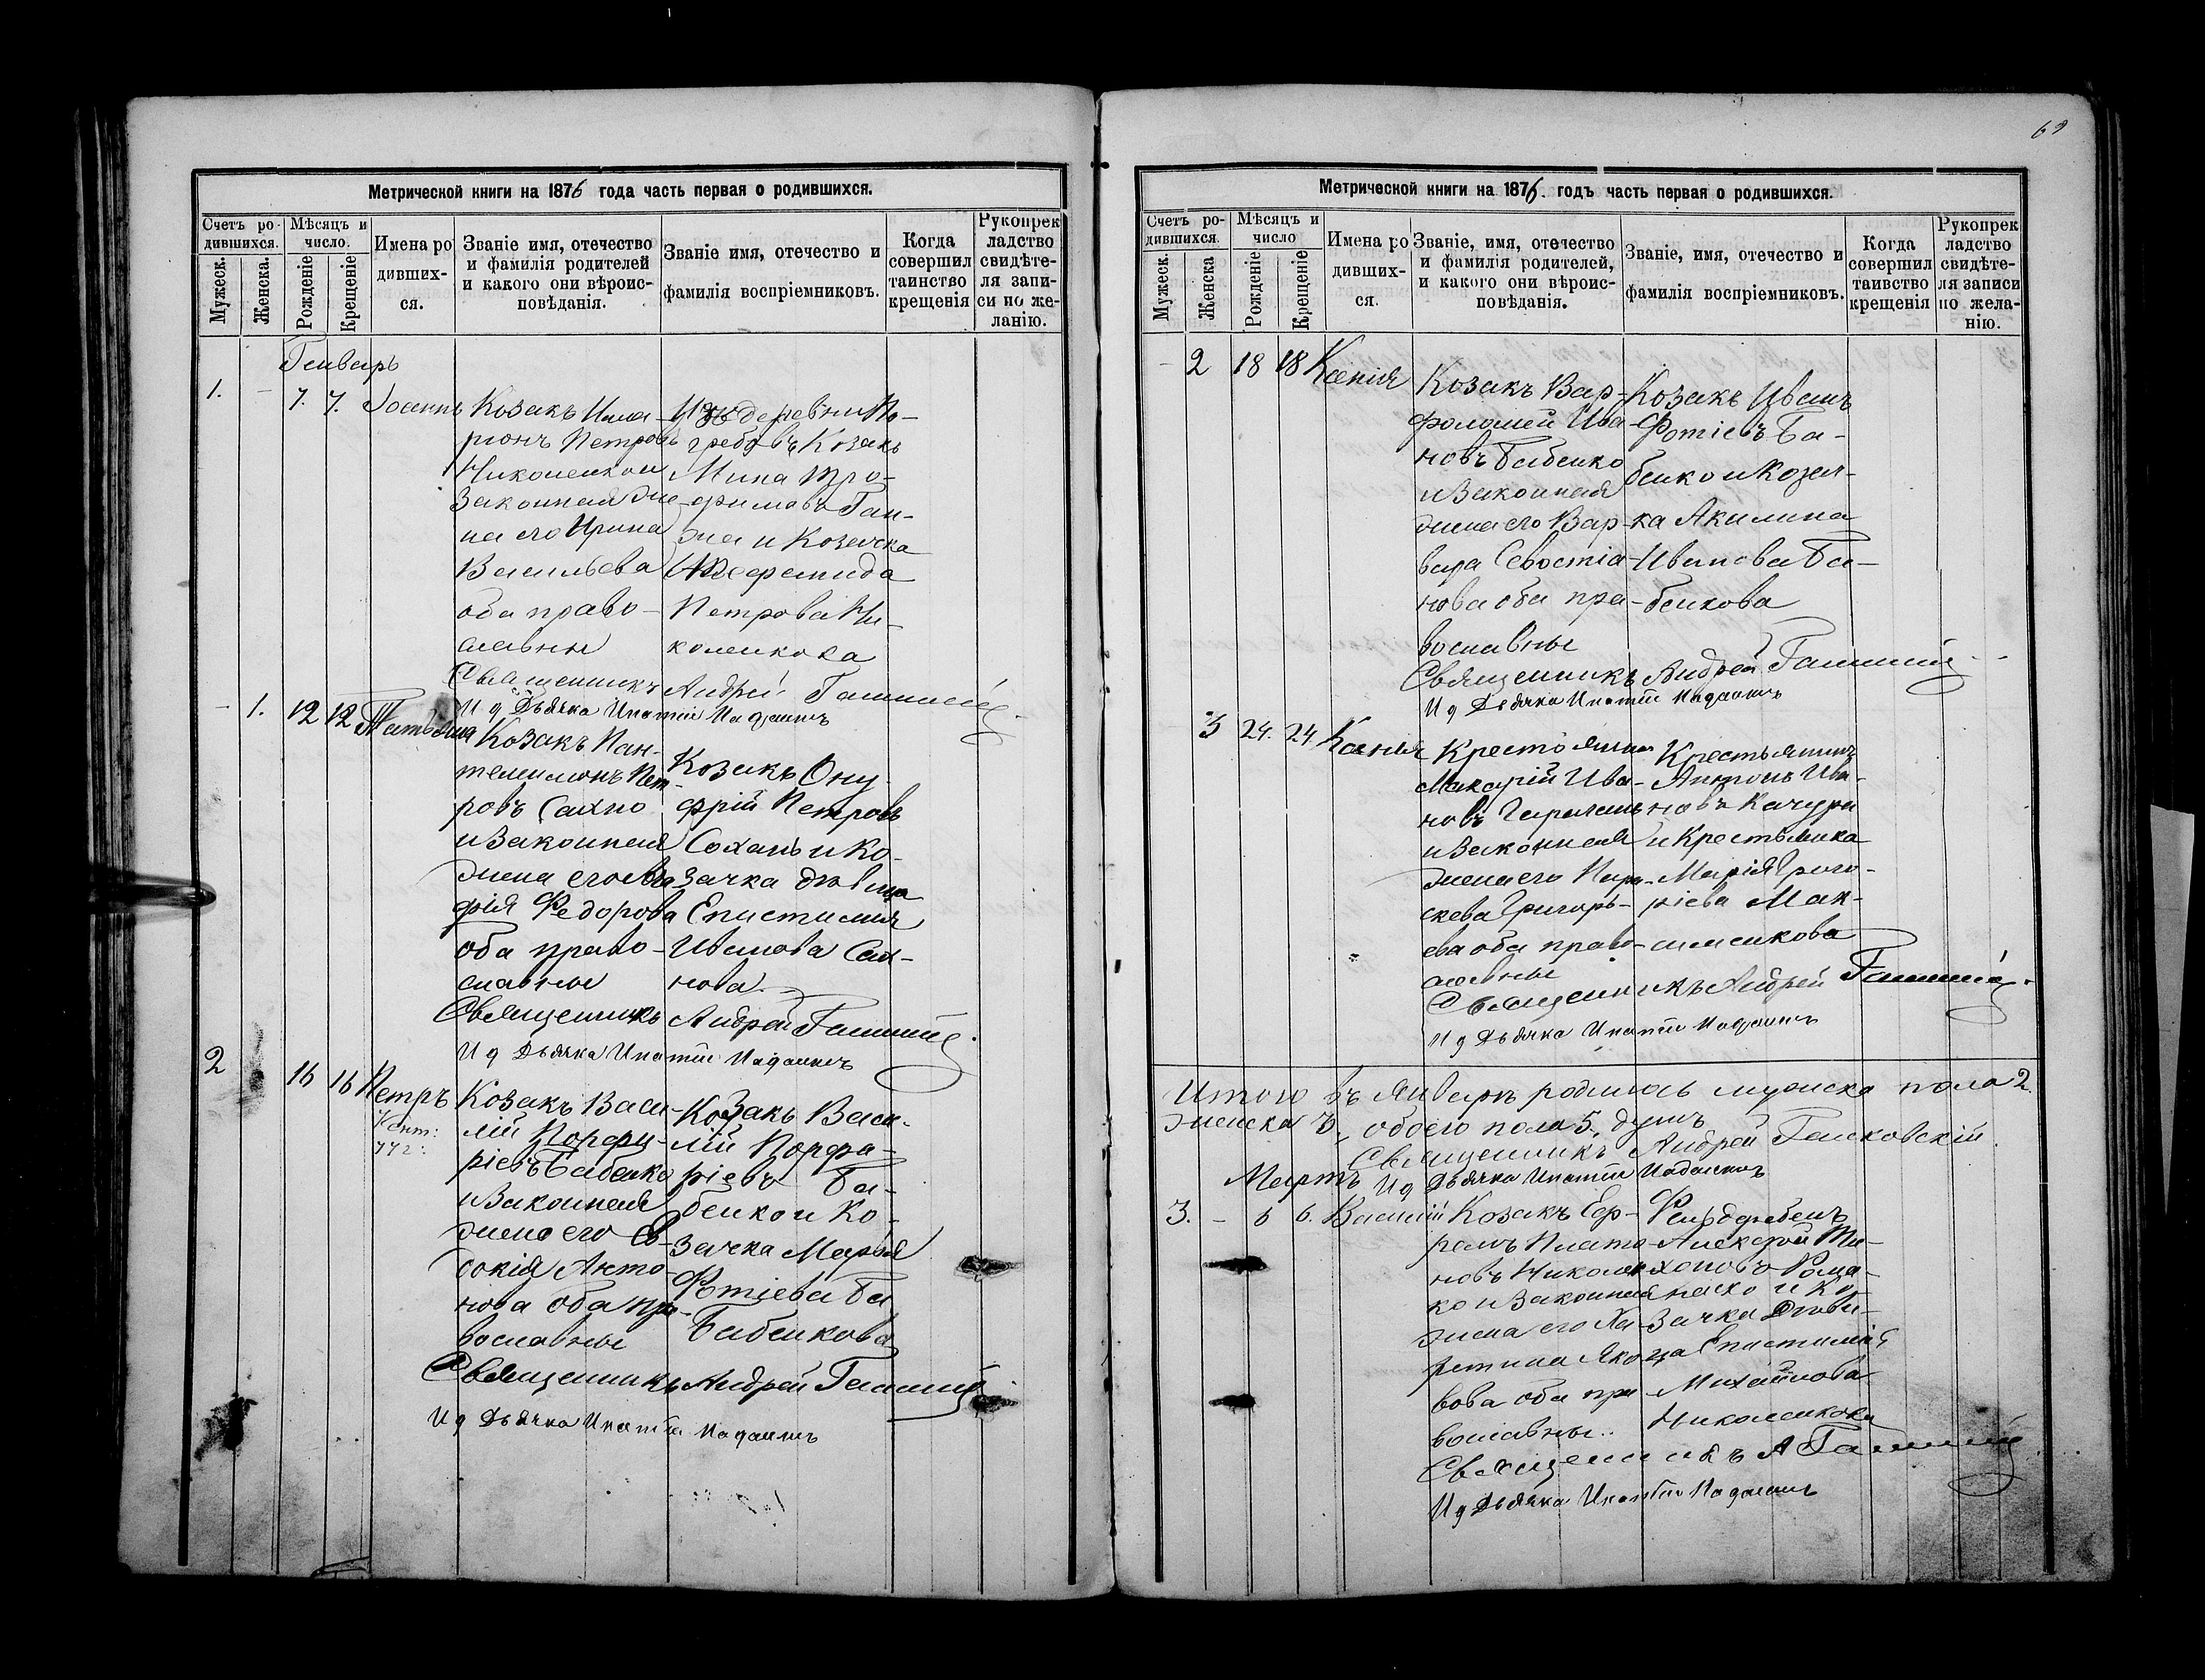 69
Метрической книги на 1876 года часть первая о родившихся.
Счетъ ро-
дившихся.
Мужеск.
Женска.
Мѣсяцъ и
число.
Рожденіе
Крещеніе
Имена ро
дивших-
ся.
Званіе имя, отечество
и фамилія родителей
и какого они вѣроис-
повѣданія.
Званіе имя, отечество и
фамилія воспріемниковъ.
Когда
совершил
таинство
крещенія
Рукопрек
ладство
свидѣте-
ля запи-
си по же-
ланію.
Генварь
1. - 7. 7. Іоаннъ
Козакъ Ила-
ріонъ Петровъ
Николенко и
Законная же-
на его Ирина
Васильева
оба право-
славны
Изъ деревни По-
гребовъ Козакъ
Мина Тро-
фимовъ Ган-
жа и Козачка
Петрова Ни-
коленкова
Священникъ Андрей
И д Дьячка Ипатій
- 1. 12 12 Татьяна
Козакъ Пан-
телимонъ Пет-
ровъ Сахно
и Законная
жена его
Федорова
оба право-
славны
Козакъ Ону-
фрій Петровъ
Сохань и Ко-
зачка дѣвица
Епистимия
Иванова Сах-
нова.
Священникъ Андрей
И д Дьячка Ипатій
2 16 16 Петръ
772:
Козакъ Васи-
лій Порфи-
ріевъ Бабенко
и Законная
жена его Ев-
докія Анто-
нова оба пра-
вославны
Козакъ Васи-
лій Порфи-
ріевъ Ба-
бенко и Ко-
зачка Марія
Фотіева Ба
Бабенкова
Священникъ Андрей
И д Дьячка Ипатій
Метрической книги на 1876. годъ часть первая о родившихся.
Счетъ ро-
дившихся.
Мужеск.
Женска
Мѣсяцъ и
число
Рожденіе
Крещеніе
Имена ро
дивших-
ся.
Званіе, имя, отечество
и фамилія родителей,
и какого они вѣроис-
повѣданія.
Званіе, имя, отечество и
фамилія воспріемниковъ.
Когда
совершил
таивство
крещенія
Рукопрек
ладство
свидѣте-
ля записи
по жела-
нію.
- 2 18 18 Ксенія
Козакъ Вар-
фоломей Ива-
новъ Бабенко
и Законная
жена его Вар-
вара Севостіа-
нова оба пра-
вославны
Козакъ Иванъ
Фотіевъ Ба-
бенко и Козач-
ка Акилина
Иванова Ба-
бенкова
Священникъ Андрей
И д Дьячка Ипатій
3 24. 24 Ксенія
Крестьянинъ
Макарій Ива-
новъ
и Законная
жена его Пара-
скева Григорь-
ева оба право-
славны
Крестьянинъ
Антонъ Ива-
новъ Качура
и Крестьянка
Марія Григо-
ріева Мак-
сименкова
Священникъ Андрей
И д Дьячка Ипатій
Итого въ Январѣ родилось мужска пола 2.
женска 3, обоего пола 5, душъ
Священникъ Андрей
Мартъ И д Дьячка Ипатій
3. - 6 6. Василій
Козакъ Еф-
ремъ Плато-
новъ Николен
ко и Законная
жена его Ха-
ритина Яко-
вова оба пра
вославны.
Фельдфебель
Алексѣй Ти-
хоновъ Рома-
наско и Ко-
зачка Дѣви-
ца Епистимія
Михайлова
Николенкова
Священникъ А
И д Дьячка Ипатій